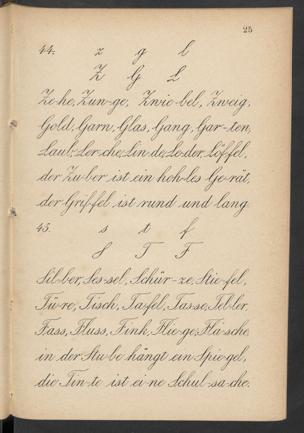 25
44. z g l
Z G L
Ze-he, Zun-ge, Zwie-bel, Zweig,
Gold, Garn, Glas, Gang, Gar-ten,
Laub, Ler-che, Lin-de, Lo-der, Löf-fel,
der Zu-ber ist ein hoh-les Ge-rät,
der Grif-fel ist rund und lang
45. s t f
S T F
Sil-ber, Ses-sel, Schür-ze, Stie-fel,
Tü-re, Tisch, Ta-fel, Tas-se, Tel-ler,
Fass, Fluss, Fink, Flie-ge, Fla-sche,
in der Stu-be hängt ein Spie-gel,
die Tin-te ist ei-ne Schul-sa-che.